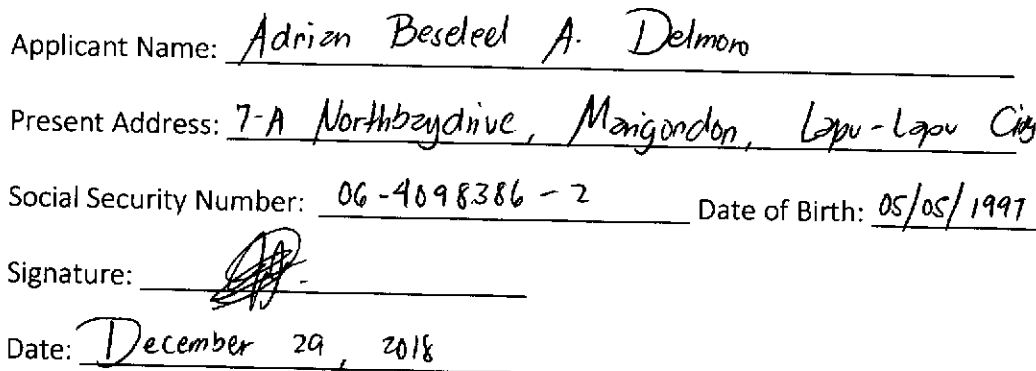 Applicant Name: Adrian Beseleel A. Delmoro
Present Address: 7-A Northbaydrive, Marigondon, Lapu-Lapu City
Social Security Number: 06-4098386-2 Date of Birth: 05/05/1997
Signature:
Date: December 29, 2018